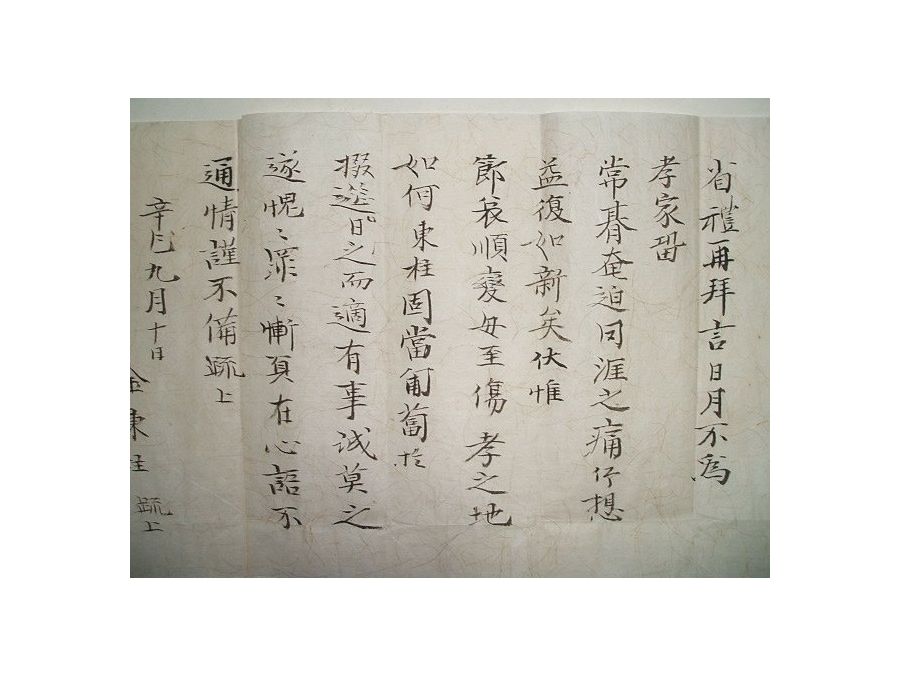 省禮再拜言日月不爲
孝家留
常朞奄迫罔涯之痛伏想
益復如新矣伏惟
節哀順變毋至傷 孝之地
如何東柱固當匍匐於
掇筵日之而適有事誠莫之
遂愧〻深〻慚負在心語不
通情謹不備疏上
辛巳九月十日
金東柱 疏上